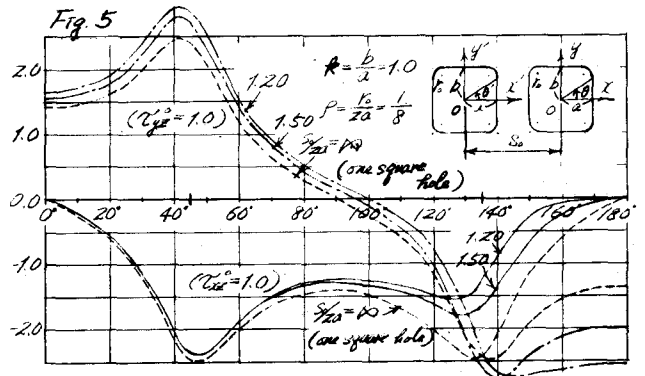 Fig. 5
2.0
1.0
0.0
-1.0
-2.0
0°
20°
40°
60°
80°
100°
120°
140°
160°
180°
k = b/a = 1.0
ρ = r₀/2a = 1/8
1.20
1.50
S₀/2a = ∞
(one square hole)
(τ°yz = 1.0)
(τ°xz = 1.0)
S₀/2a = ∞
(one square hole)
1.20
1.50
y'
y
r₀
b
θ'
x'
O
a
r₀
b
θ
x
O
a
S₀